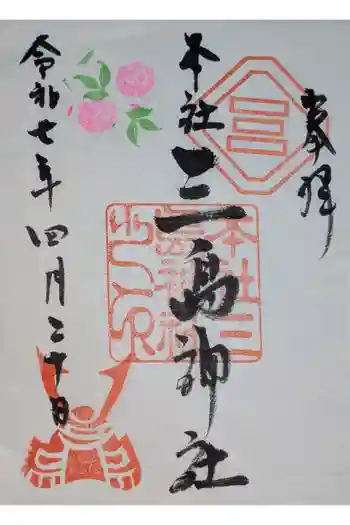 奉拝
本社三島神社
令和七年四月二十日
本社三
島神社